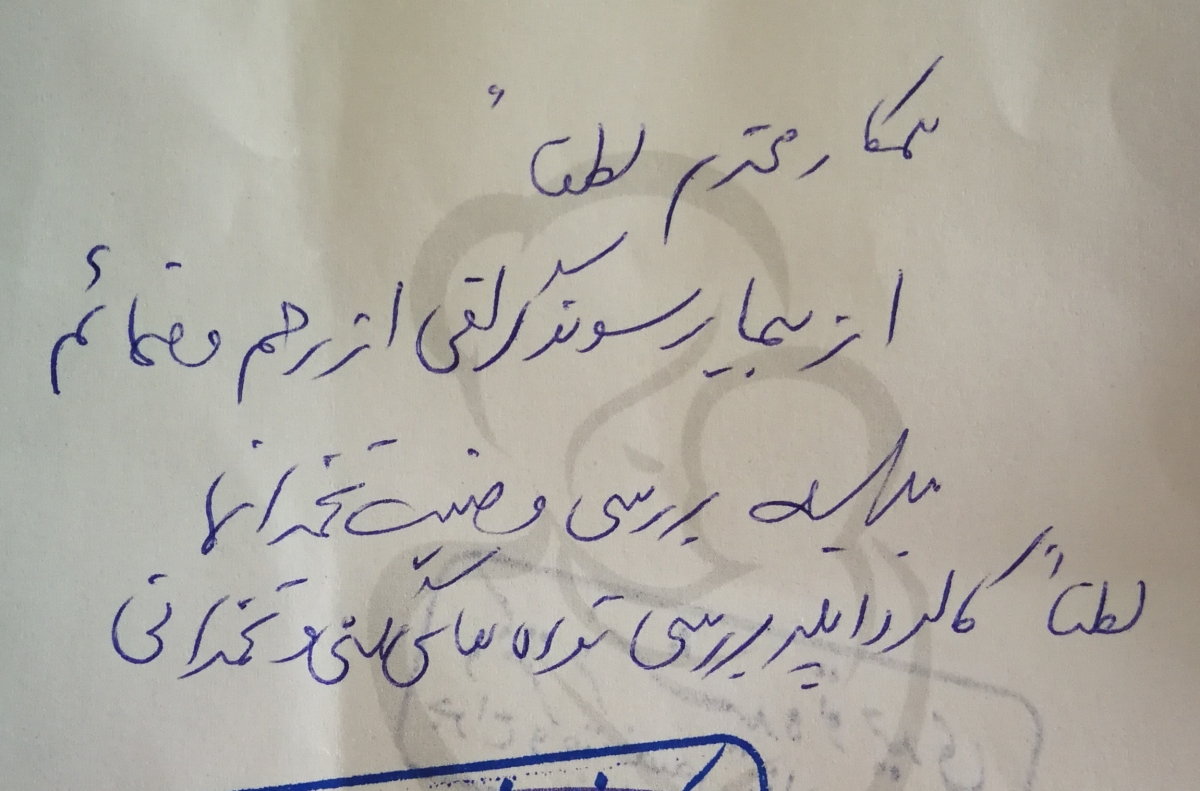 همکار محترم لطفاً
از بیمار سونوگرافی از رحم و ضمائم
بررسی وضعیت تخمدانها
لطفاً کالر داپلر بررسی توده های لگنی و تخمدانی